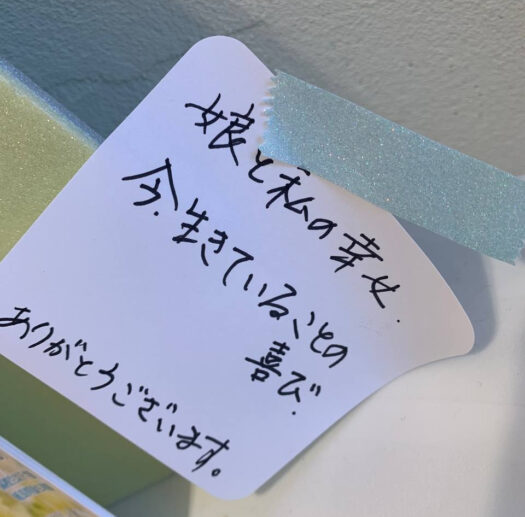 娘と私の幸せ.
今、生きていることの
喜び.
ありがとうございます。